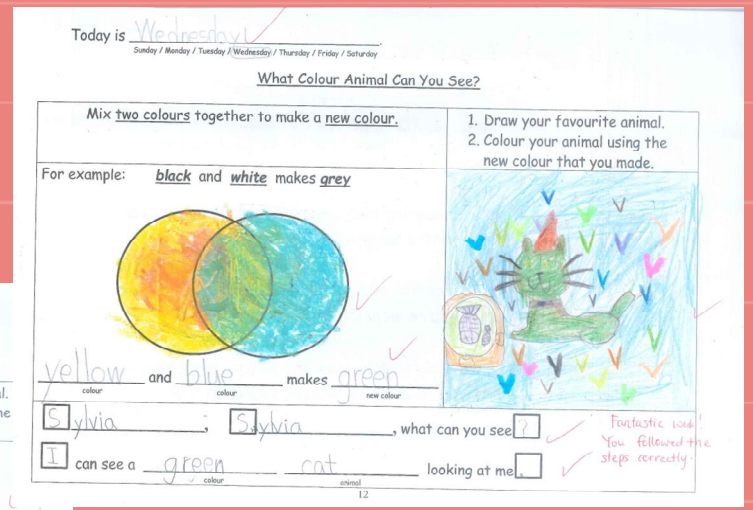 Today is Wednesday.
Sunday / Monday / Tuesday / Wednesday / Thursday / Friday / Saturday
What Colour Animal Can You See?
Mix two colours together to make a new colour.
1. Draw your favourite animal.
2. Colour your animal using the
new colour that you made.
For example: black and white makes grey
yellow and blue makes green
colour colour new colour
Sylvia, Sylvia, what can you see?
I can see a green cat looking at me.
colour animal
Fantastic work!
You followed the
steps correctly.
12
l.
ne